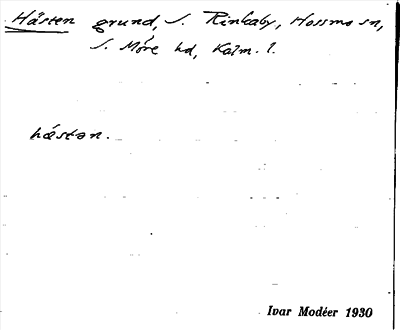 Hästen grund, S. Rinkaby, Hossmo sn,
S. Möre hd, Kalm. l.
hästən.
Ivar Modéer 1930